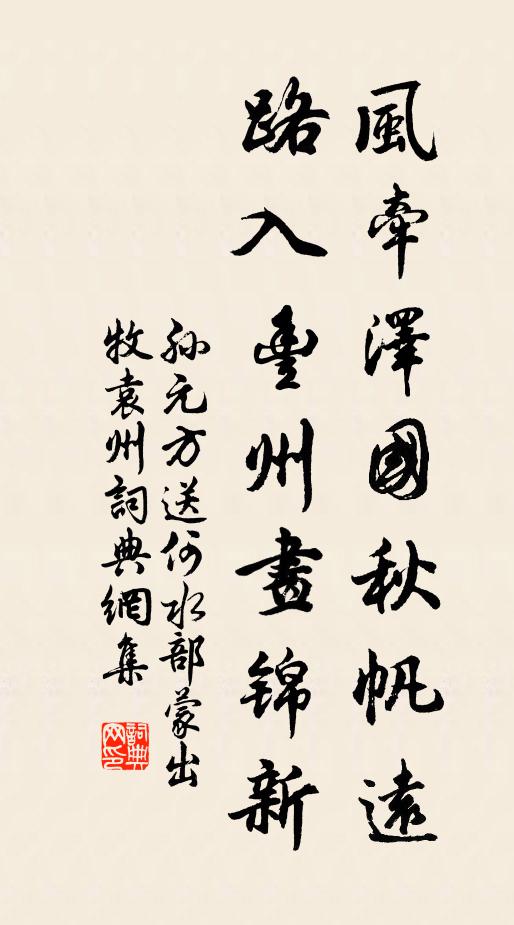 風牽澤國秋帆遠
路入豐州畫錦新
孫元方送何水部蒙出
牧袁州詞典網集
詞典
网印